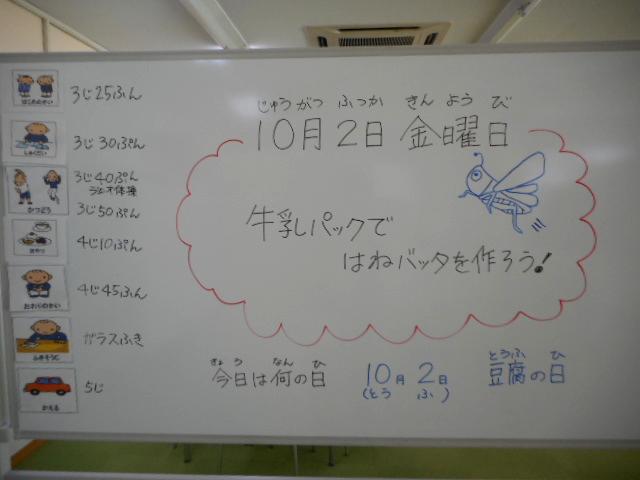 はじめのかい
3じ25ふん
しゅくだい
3じ30ぷん
3じ40ぷん
ラジオ体操
かつどう
3じ50ぷん
おやつ
4じ10ぷん
おわりのかい
4じ45ふん
ふきそうじ
ガラスふき
かえる
5じ
じゅうがつ ふつか きんようび
10月2日 金曜日
牛乳パックで
はねバッタを作ろう!
きょう なん ひ
今日は何の日
10月2日
(とう ふ)
とうふ ひ
豆腐の日